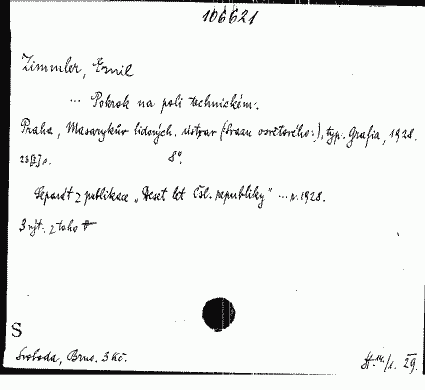 106621
Zimmler, Emil
... Pokrok na poli technickém.
Praha, Masarykův lidových. ústav (svazu osvětového:), typ. Grafia, 1928.
8°.
Separát z publikace „Deset let Čsl. republiky" ... r. 1928.
3 výt. z toho
S
Svoboda, Brno. 3 Kč.
29.